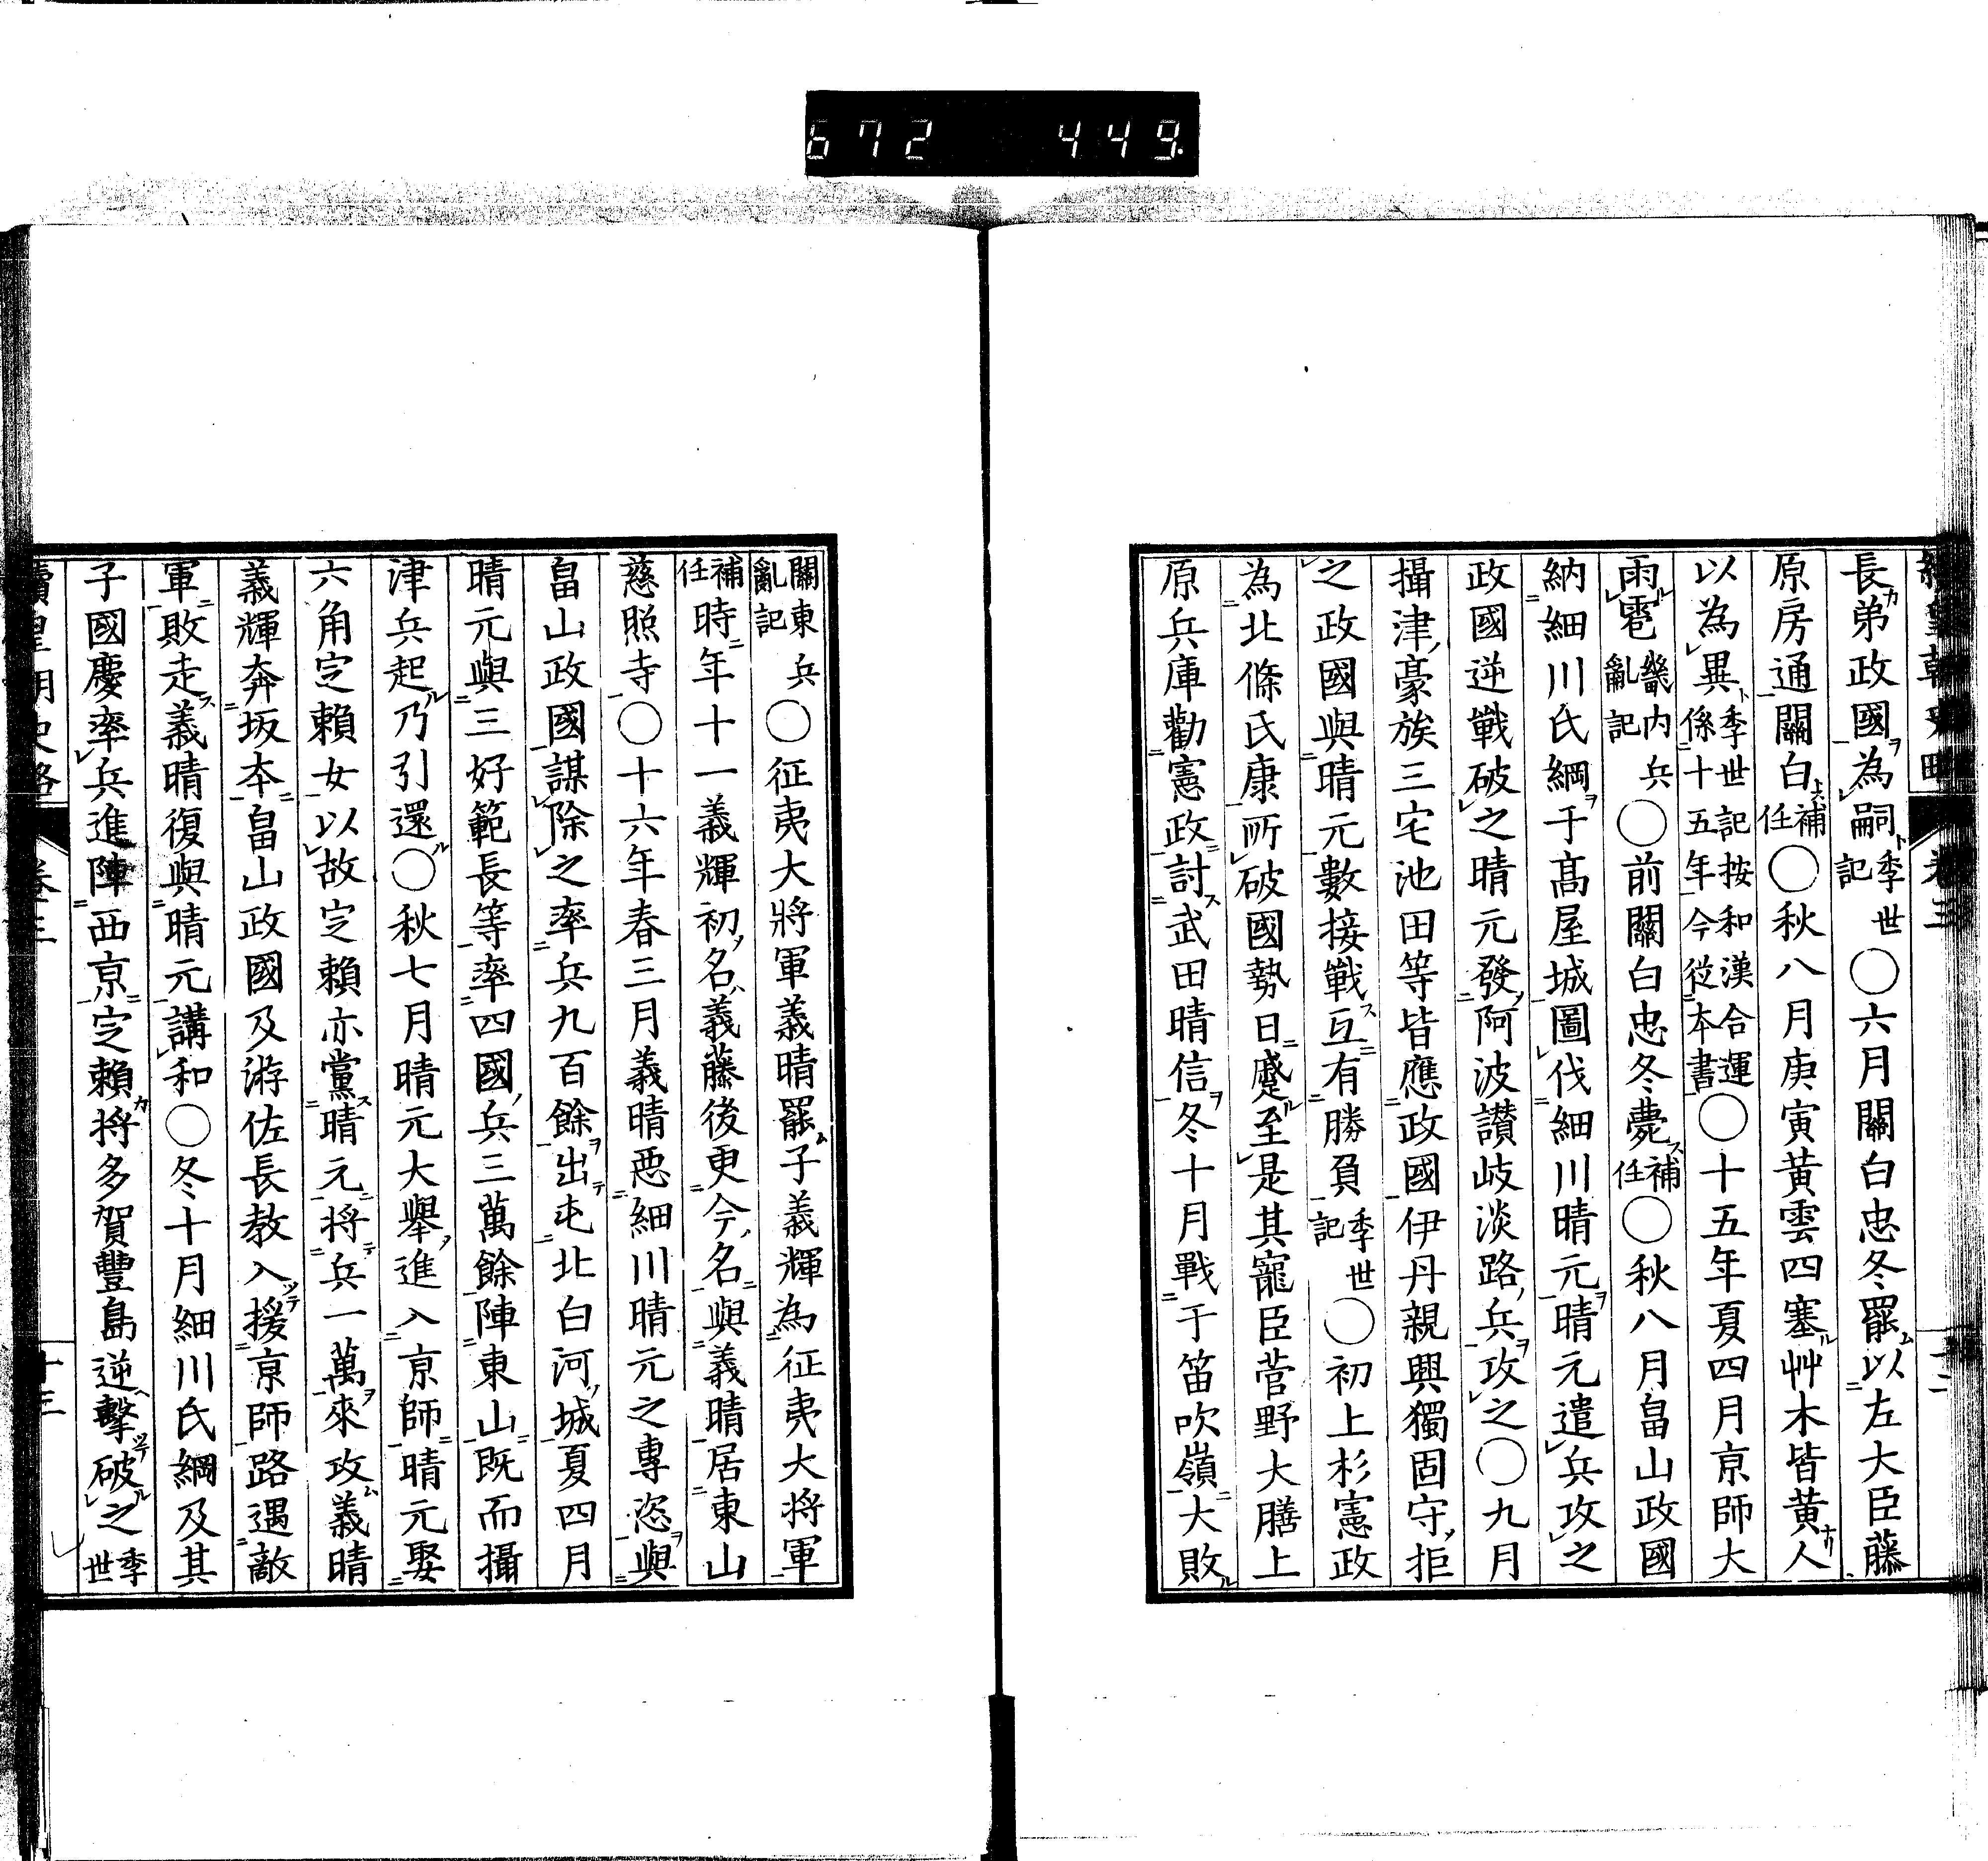 672 449
長弟政國為嗣季世記〇六月關白忠冬罷以左大臣藤
原房通關白補任〇秋八月庚寅黃雲四塞艸木皆黃人
以為異季世記按和漢合運係十五年今從本書〇十五年夏四月京師大
雨雹畿内兵亂記〇前關白忠冬薨補任〇秋八月畠山政國
納細川氏綱于髙屋城圖伐細川晴元晴元遣兵攻之
政國逆戰破之晴元發阿波讃岐淡路兵攻之〇九月
攝津豪族三宅池田等皆應政國伊丹親興獨固守拒
之政國與晴元數接戰互有勝負季世記〇初上杉憲政
為北條氏康所破國勢日蹙至是其寵臣菅野大膳上
原兵庫勸憲政討武田晴信冬十月戰于笛吹嶺大敗
關東兵亂記〇征夷大將軍義晴罷子義輝為征夷大将軍
補任時年十一義輝初名義藤後更今名與義晴居東山
慈照寺〇十六年春三月義晴惡細川晴元之專恣與
畠山政國謀除之率兵九百餘出屯北白河城夏四月
晴元與三好範長等率四國兵三萬餘陣東山既而攝
津兵起乃引還〇秋七月晴元大舉進入京師晴元娶
六角定賴女以故定賴亦黨晴元将兵一萬來攻義晴
義輝奔坂本畠山政國及游佐長教入援京師路遇敵
軍敗走義晴復與晴元講和〇冬十月細川氏綱及其
子國慶率兵進陣西京定賴将多賀豐島逆擊破之季世